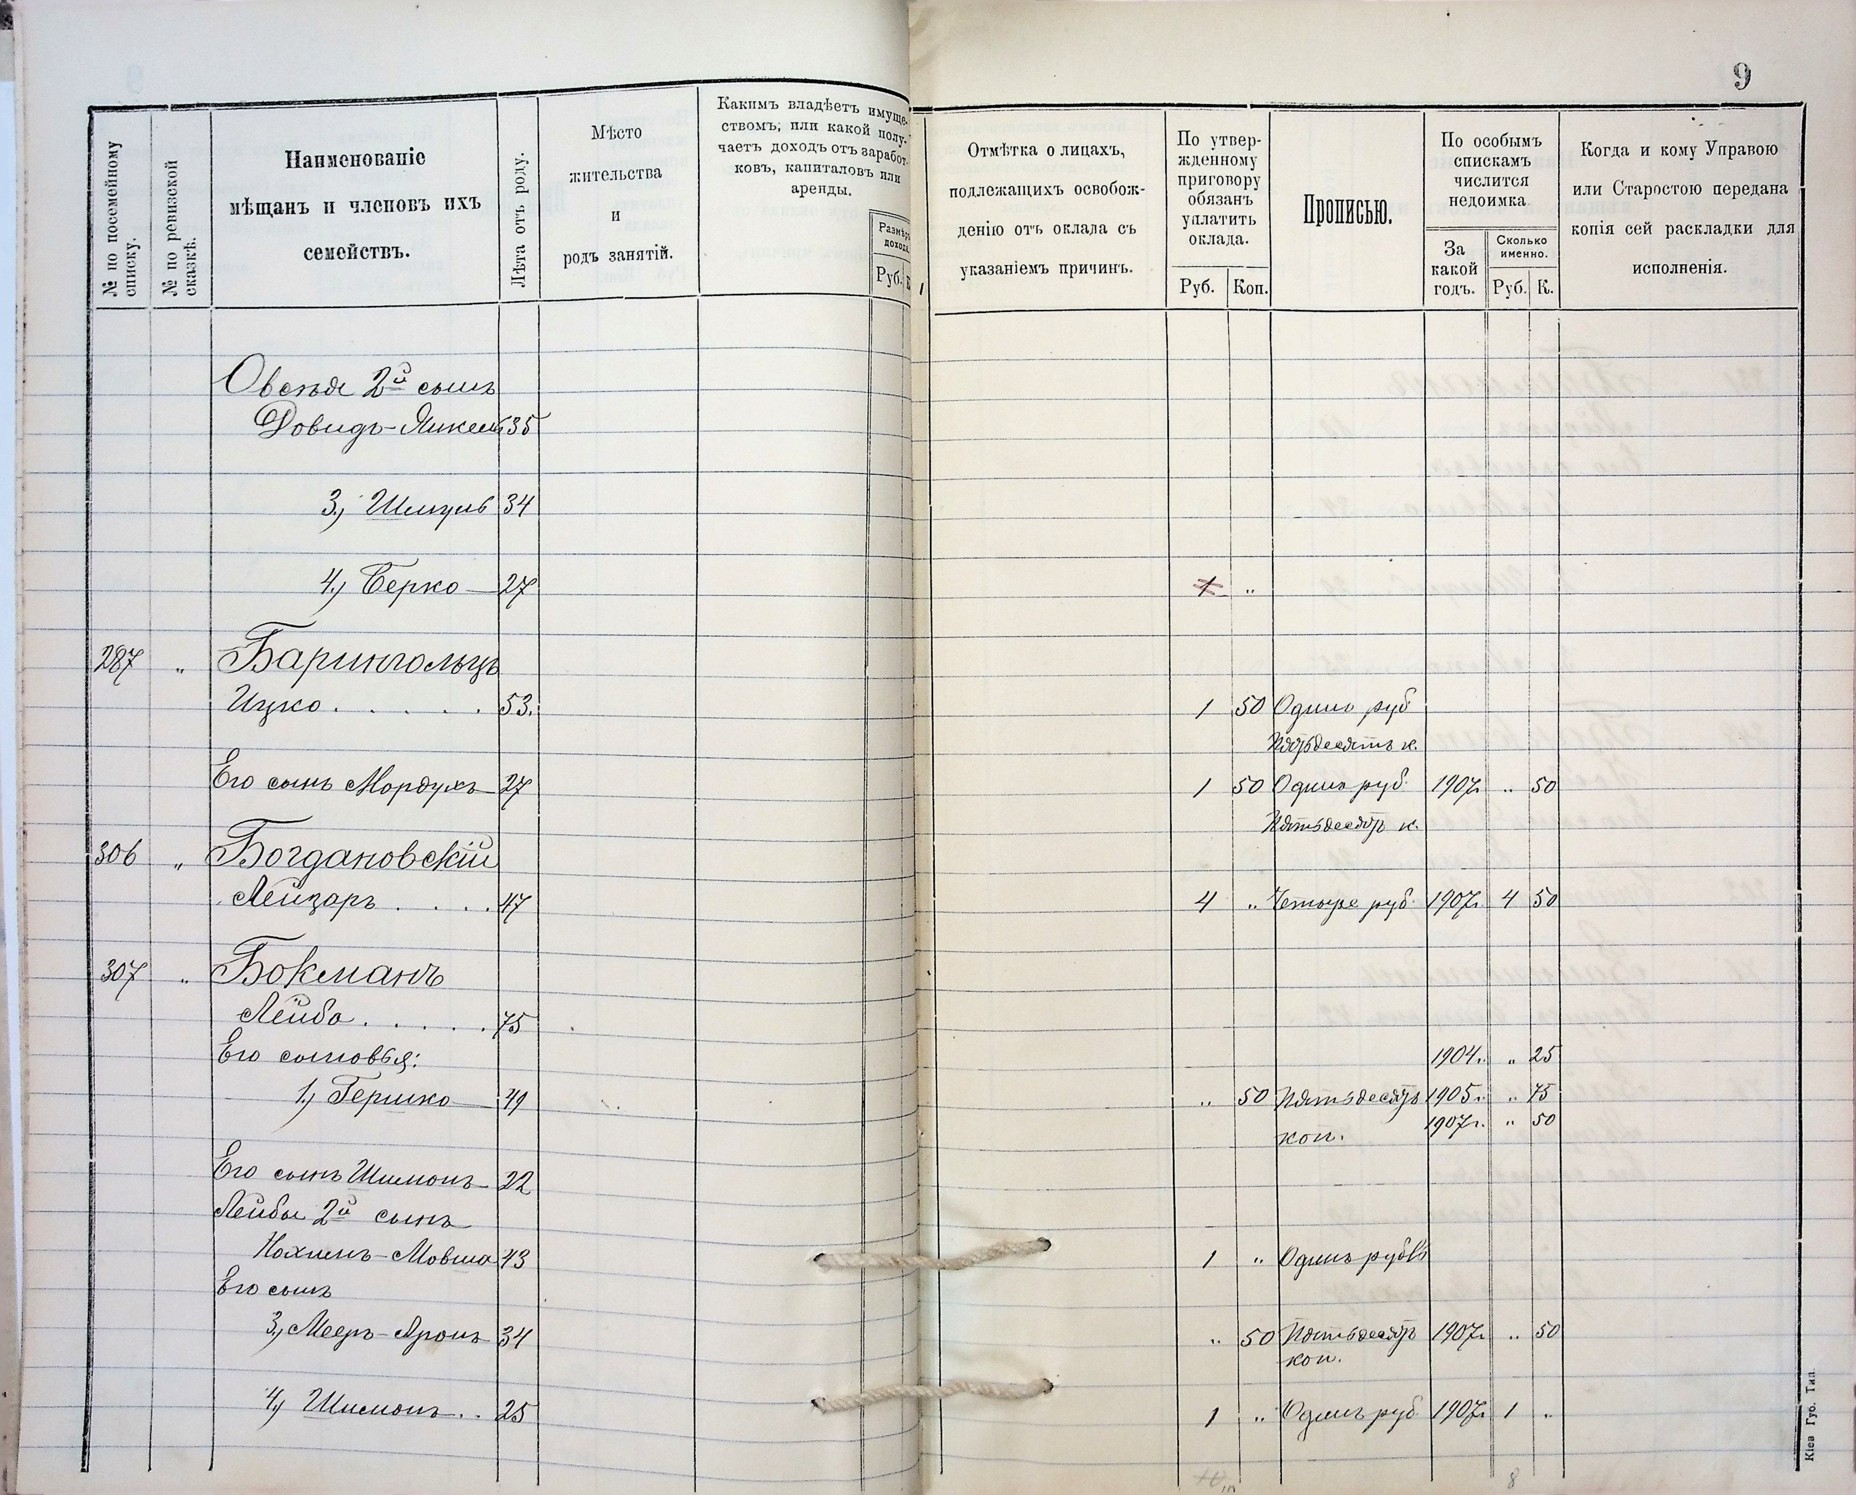 9
№ по посемейному списку.
№ по ревизской сказкѣ.
Наименованіе
мѣщанъ и членовъ ихъ
семействъ.
Лѣта отъ роду.
Мѣсто
жительства
и
родъ занятій.
Какимъ владѣетъ имуще-
ствомъ, или какой полу-
чаетъ доходъ отъ заработ-
ковъ, капиталовъ или
аренды.
Размѣръ
дохода.
Руб.
Отмѣтка о лицахъ,
подлежащихъ освобож-
денію отъ оклада съ
указаніемъ причинъ.
По утвер-
жденному
приговору
обязанъ
уплатить
оклада.
Руб. Коп.
Прописью.
По особымъ
спискамъ
числится
недоимка
За
какой
годъ.
Сколько
именно.
Руб. К.
Когда и кому Управою
или Старостою передана
копія сей раскладки для
исполненія.
Овсѣя 2й сынъ
Довидъ-Янкель 35
3.) Шмуль 34
4.) Берко 27 1 "
287 " Барингольцъ
Ицко . . . . . 53. 1 50 Одинъ руб
Пятьдесятъ к.
Его сынъ Мордухъ 27 1 50 Одинъ руб. 1907г. " 50
Пятьдесятъ к.
306 " Богдановскій
Лейзаръ . . . . 47 4 " Четыре руб. 1907г. 4 50
307 " Бокманъ
Лейба . . . . . 75
Его сыновья: 1904г. " 25
1.) Гершко 49 " 50 Пятьдесятъ 1905г. " 75
коп. 1907г. " 50
Его сынъ Шимонъ 22
Лейбы 2й сынъ
Нохменъ-Мовша 43 1 " Одинъ рубль
Его сынъ
3.) Мееръ-Аронъ 34 " 50 Пятьдесятъ 1907г. " 50
коп.
4.) Шимонъ . . 25 1 " Одинъ руб. 1907г. 1 "
8
Кіев Губ. Тип.